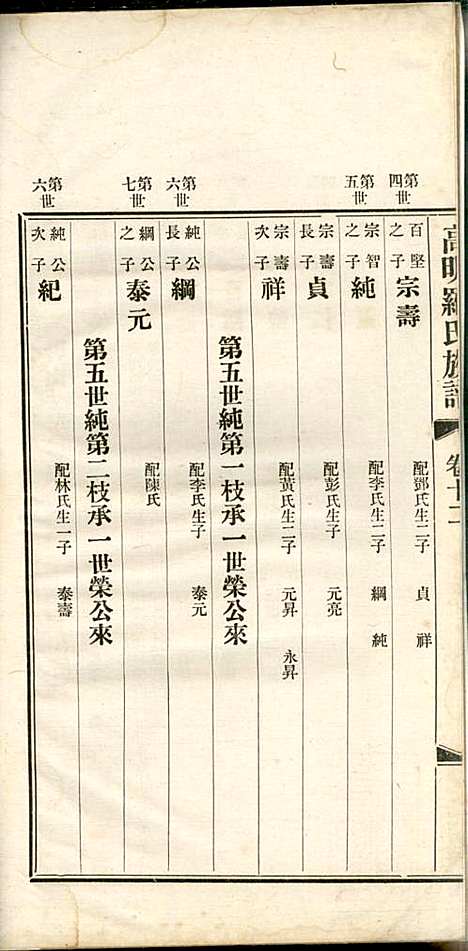 高明羅氏族譜 卷十二
第四世
百堅之子 宗壽 配鄧氏生二子 貞 祥
第五世
宗智之子 純 配李氏生二子 綱 純
宗壽長子 貞 配彭氏生子 元亮
宗壽次子 祥 配黃氏生二子 元昇 永昇
第五世純第一枝承一世榮公來
第六世
純公長子 綱 配李氏生子 泰元
第七世
綱公之子 泰元 配陳氏
第五世純第二枝承一世榮公來
第六世
純公次子 紀 配林氏生一子 泰壽